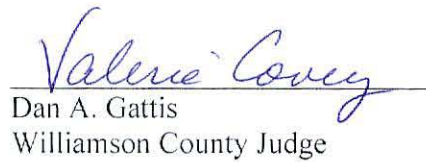 Valerie Covey
Dan A. Gattis
Williamson County Judge